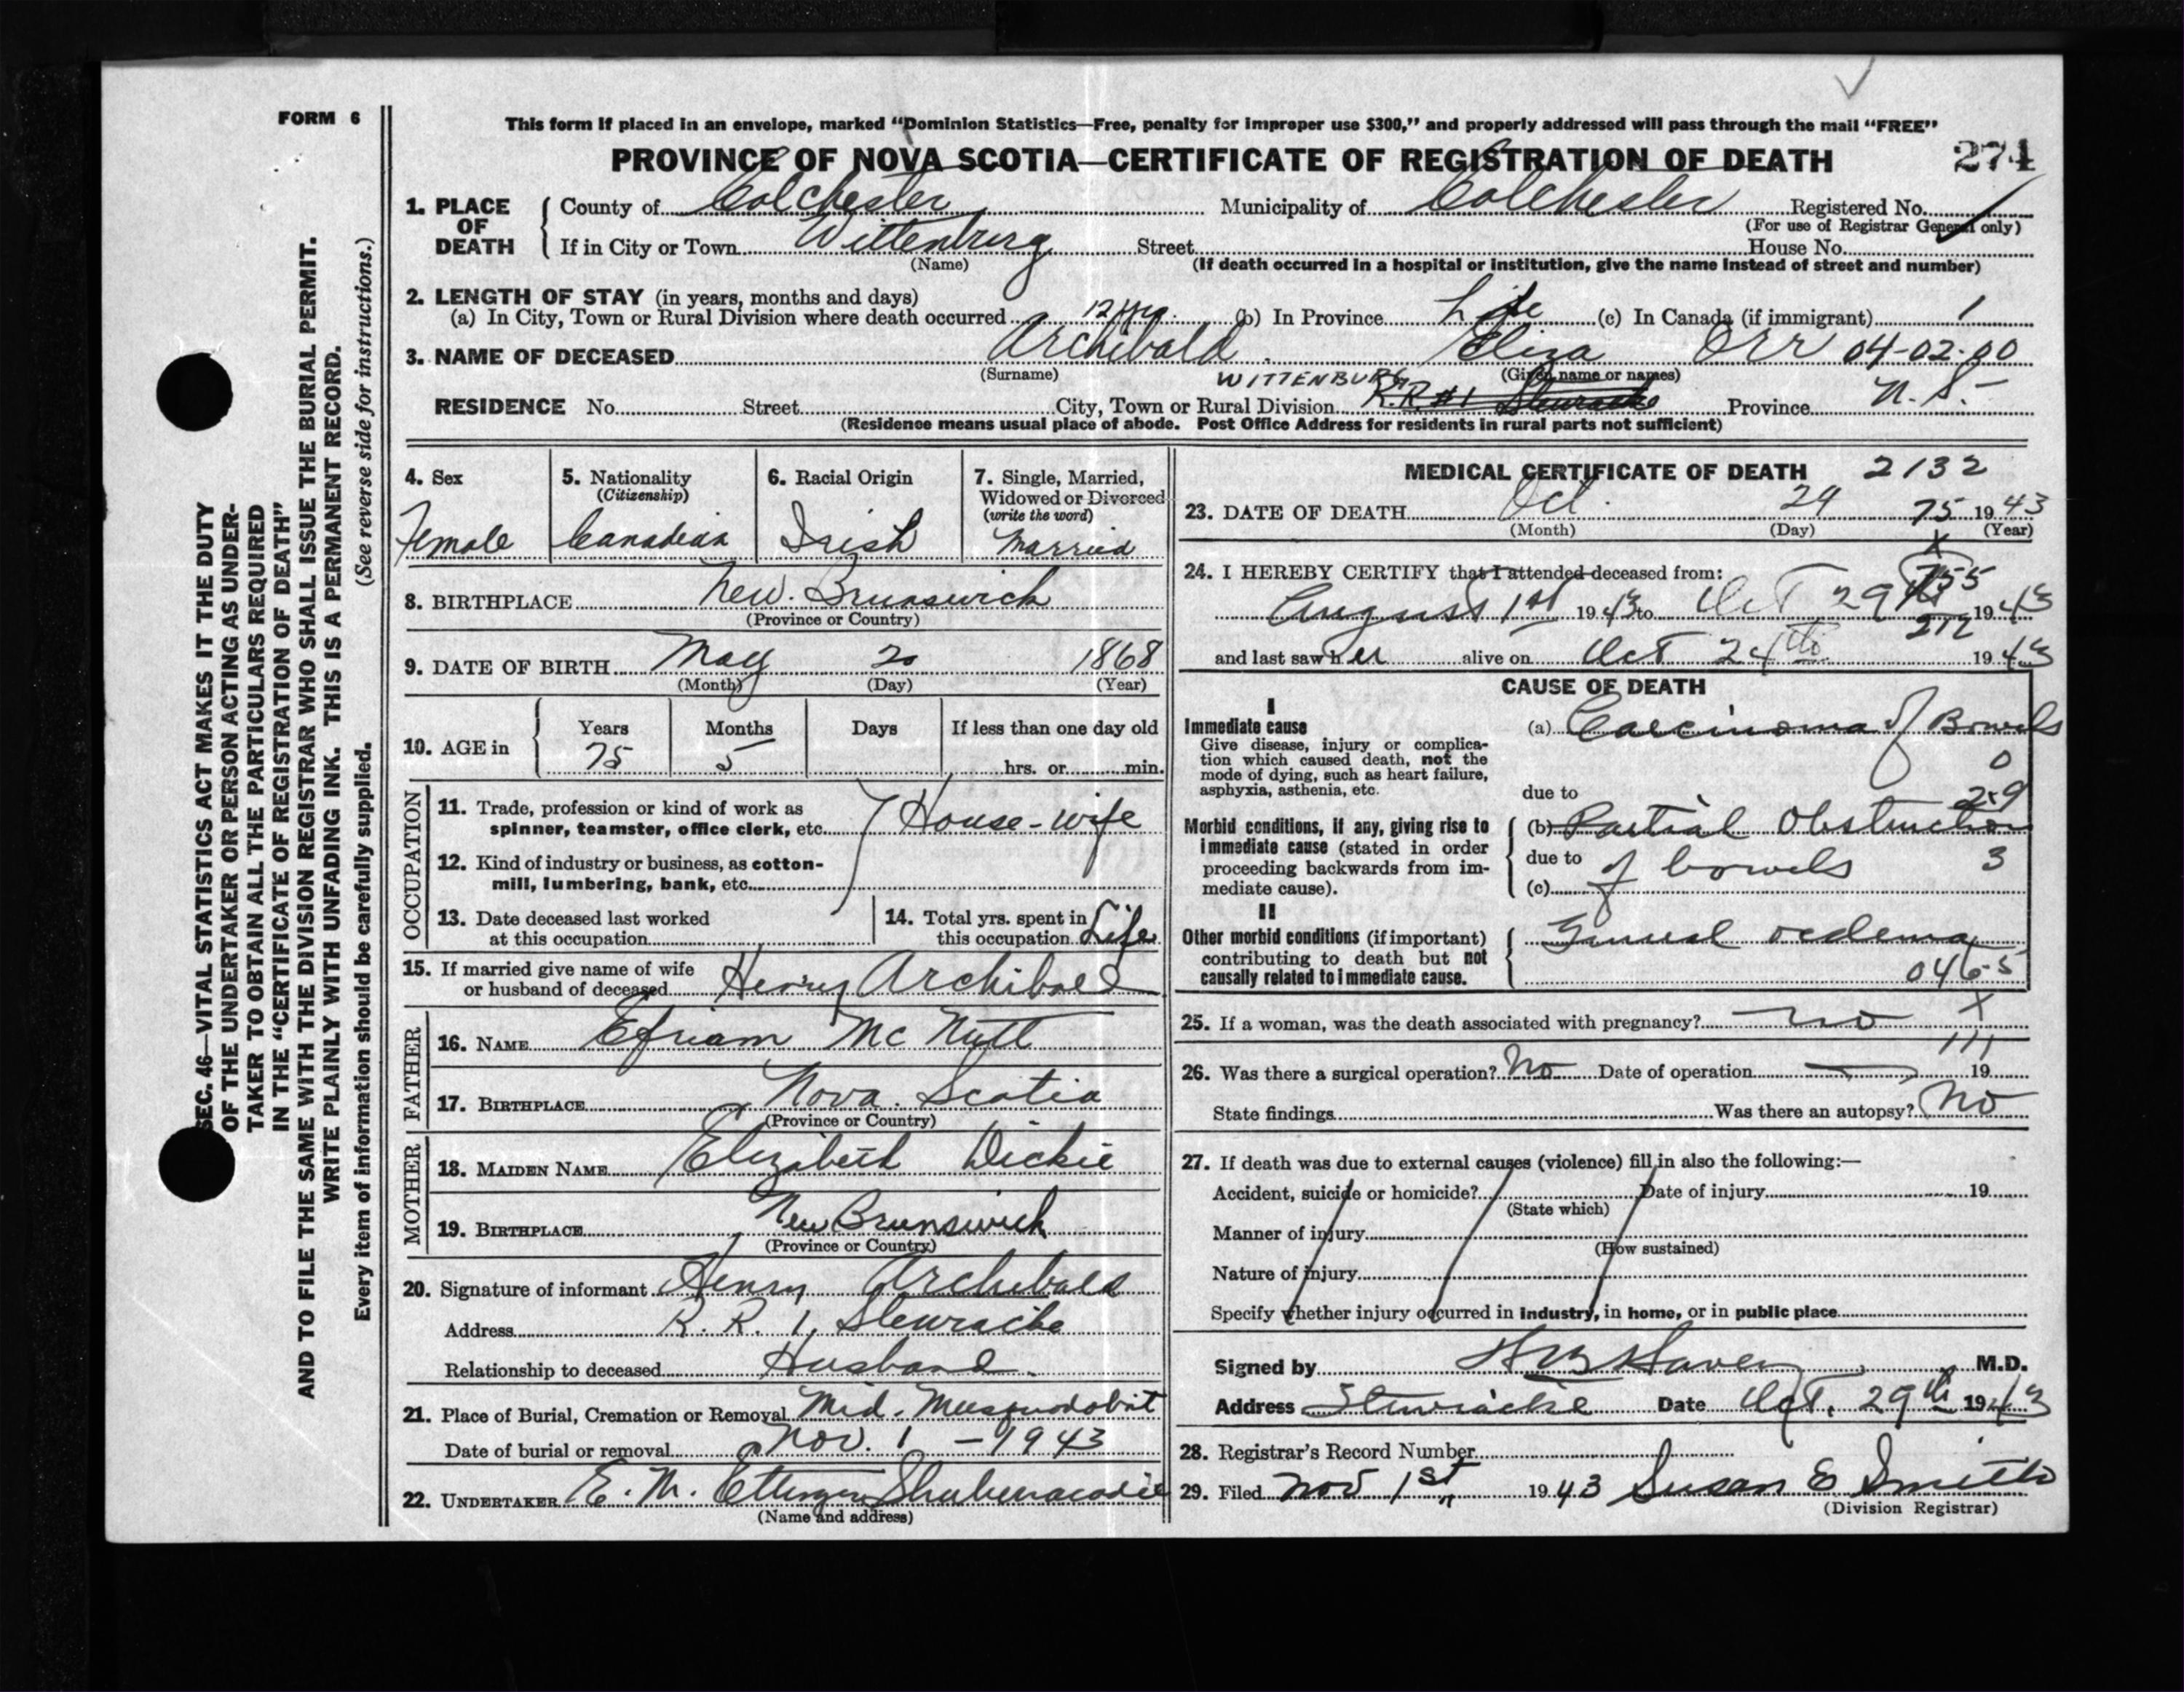 FORM 6
This form if placed in an envelope, marked “Dominion Statistics—Free, penalty for improper use $300,” and properly addressed will pass through the mail “FREE”
PROVINCE OF NOVA SCOTIA—CERTIFICATE OF REGISTRATION OF DEATH 274
1. PLACE OF DEATH { County of Colchester Municipality of Colchester Registered No.
(For use of Registrar General only)
If in City or Town Wittenburg Street House No.
(Name) (If death occurred in a hospital or institution, give the name instead of street and number)
2. LENGTH OF STAY (in years, months and days)
(a) In City, Town or Rural Division where death occurred 12 yrs. (b) In Province Life (c) In Canada (if immigrant) 1
3. NAME OF DECEASED Archibald. Eliza Orr 04-02-00
(Surname) (Given name or names)
WITTENBURG
RESIDENCE No. Street City, Town or Rural Division R.R. #1 Stewiacke Province N.S.
(Residence means usual place of abode. Post Office Address for residents in rural parts not sufficient)
4. Sex Female
5. Nationality (Citizenship) Canadian
6. Racial Origin Irish
7. Single, Married, Widowed or Divorced (write the word) Married
8. BIRTHPLACE New. Brunswick
(Province or Country)
9. DATE OF BIRTH May 20 1868
(Month) (Day) (Year)
10. AGE in { Years 75 Months 5 Days If less than one day old hrs. or min.
OCCUPATION
11. Trade, profession or kind of work as spinner, teamster, office clerk, etc. House-wife
12. Kind of industry or business, as cotton-mill, lumbering, bank, etc.
13. Date deceased last worked at this occupation
14. Total yrs. spent in this occupation Life
15. If married give name of wife or husband of deceased Henry Archibald
FATHER
16. NAME Efriam Mc Nutt
17. BIRTHPLACE Nova. Scotia
(Province or Country)
MOTHER
18. MAIDEN NAME Elizabeth Dickie
19. BIRTHPLACE New Brunswick
(Province or Country)
20. Signature of informant Henry Archibald
Address R. R. 1, Stewiacke
Relationship to deceased Husband.
21. Place of Burial, Cremation or Removal Mid. Musquodobit
Date of burial or removal Nov. 1 - 1943
22. UNDERTAKER E. M. Ettinger Shubenacadie
(Name and address)
MEDICAL CERTIFICATE OF DEATH 2132
23. DATE OF DEATH Oct. 29 75 1943
(Month) (Day) (Year)
x
24. I HEREBY CERTIFY that I attended deceased from:
August 1st 1943 to Oct 29 1943
212
and last saw her alive on Oct 24th 1943
CAUSE OF DEATH
I
Immediate cause
Give disease, injury or complication which caused death, not the mode of dying, such as heart failure, asphyxia, asthenia, etc.
(a) Carcinoma of Bowels
0
due to
29
Morbid conditions, if any, giving rise to immediate cause (stated in order proceeding backwards from immediate cause).
(b) Partial Obstruction
due to of bowels 3
(c)
II
Other morbid conditions (if important) contributing to death but not causally related to immediate cause.
oedema
0465
25. If a woman, was the death associated with pregnancy? no x
111
26. Was there a surgical operation? No Date of operation 19
State findings Was there an autopsy? No
27. If death was due to external causes (violence) fill in also the following:—
Accident, suicide or homicide? Date of injury 19
(State which)
Manner of injury
(How sustained)
Nature of injury
Specify whether injury occurred in industry, in home, or in public place
Signed by M.D.
Address Stewiacke Date Oct. 29th 1943
28. Registrar's Record Number
29. Filed Nov 1st, 1943 Susan E Smith
(Division Registrar)
SEC. 46—VITAL STATISTICS ACT MAKES IT THE DUTY
OF THE UNDERTAKER OR PERSON ACTING AS UNDER-
TAKER TO OBTAIN ALL THE PARTICULARS REQUIRED
IN THE “CERTIFICATE OF REGISTRATION OF DEATH”
AND TO FILE THE SAME WITH THE DIVISION REGISTRAR WHO SHALL ISSUE THE BURIAL PERMIT.
WRITE PLAINLY WITH UNFADING INK. THIS IS A PERMANENT RECORD.
Every item of information should be carefully supplied. (See reverse side for instructions.)